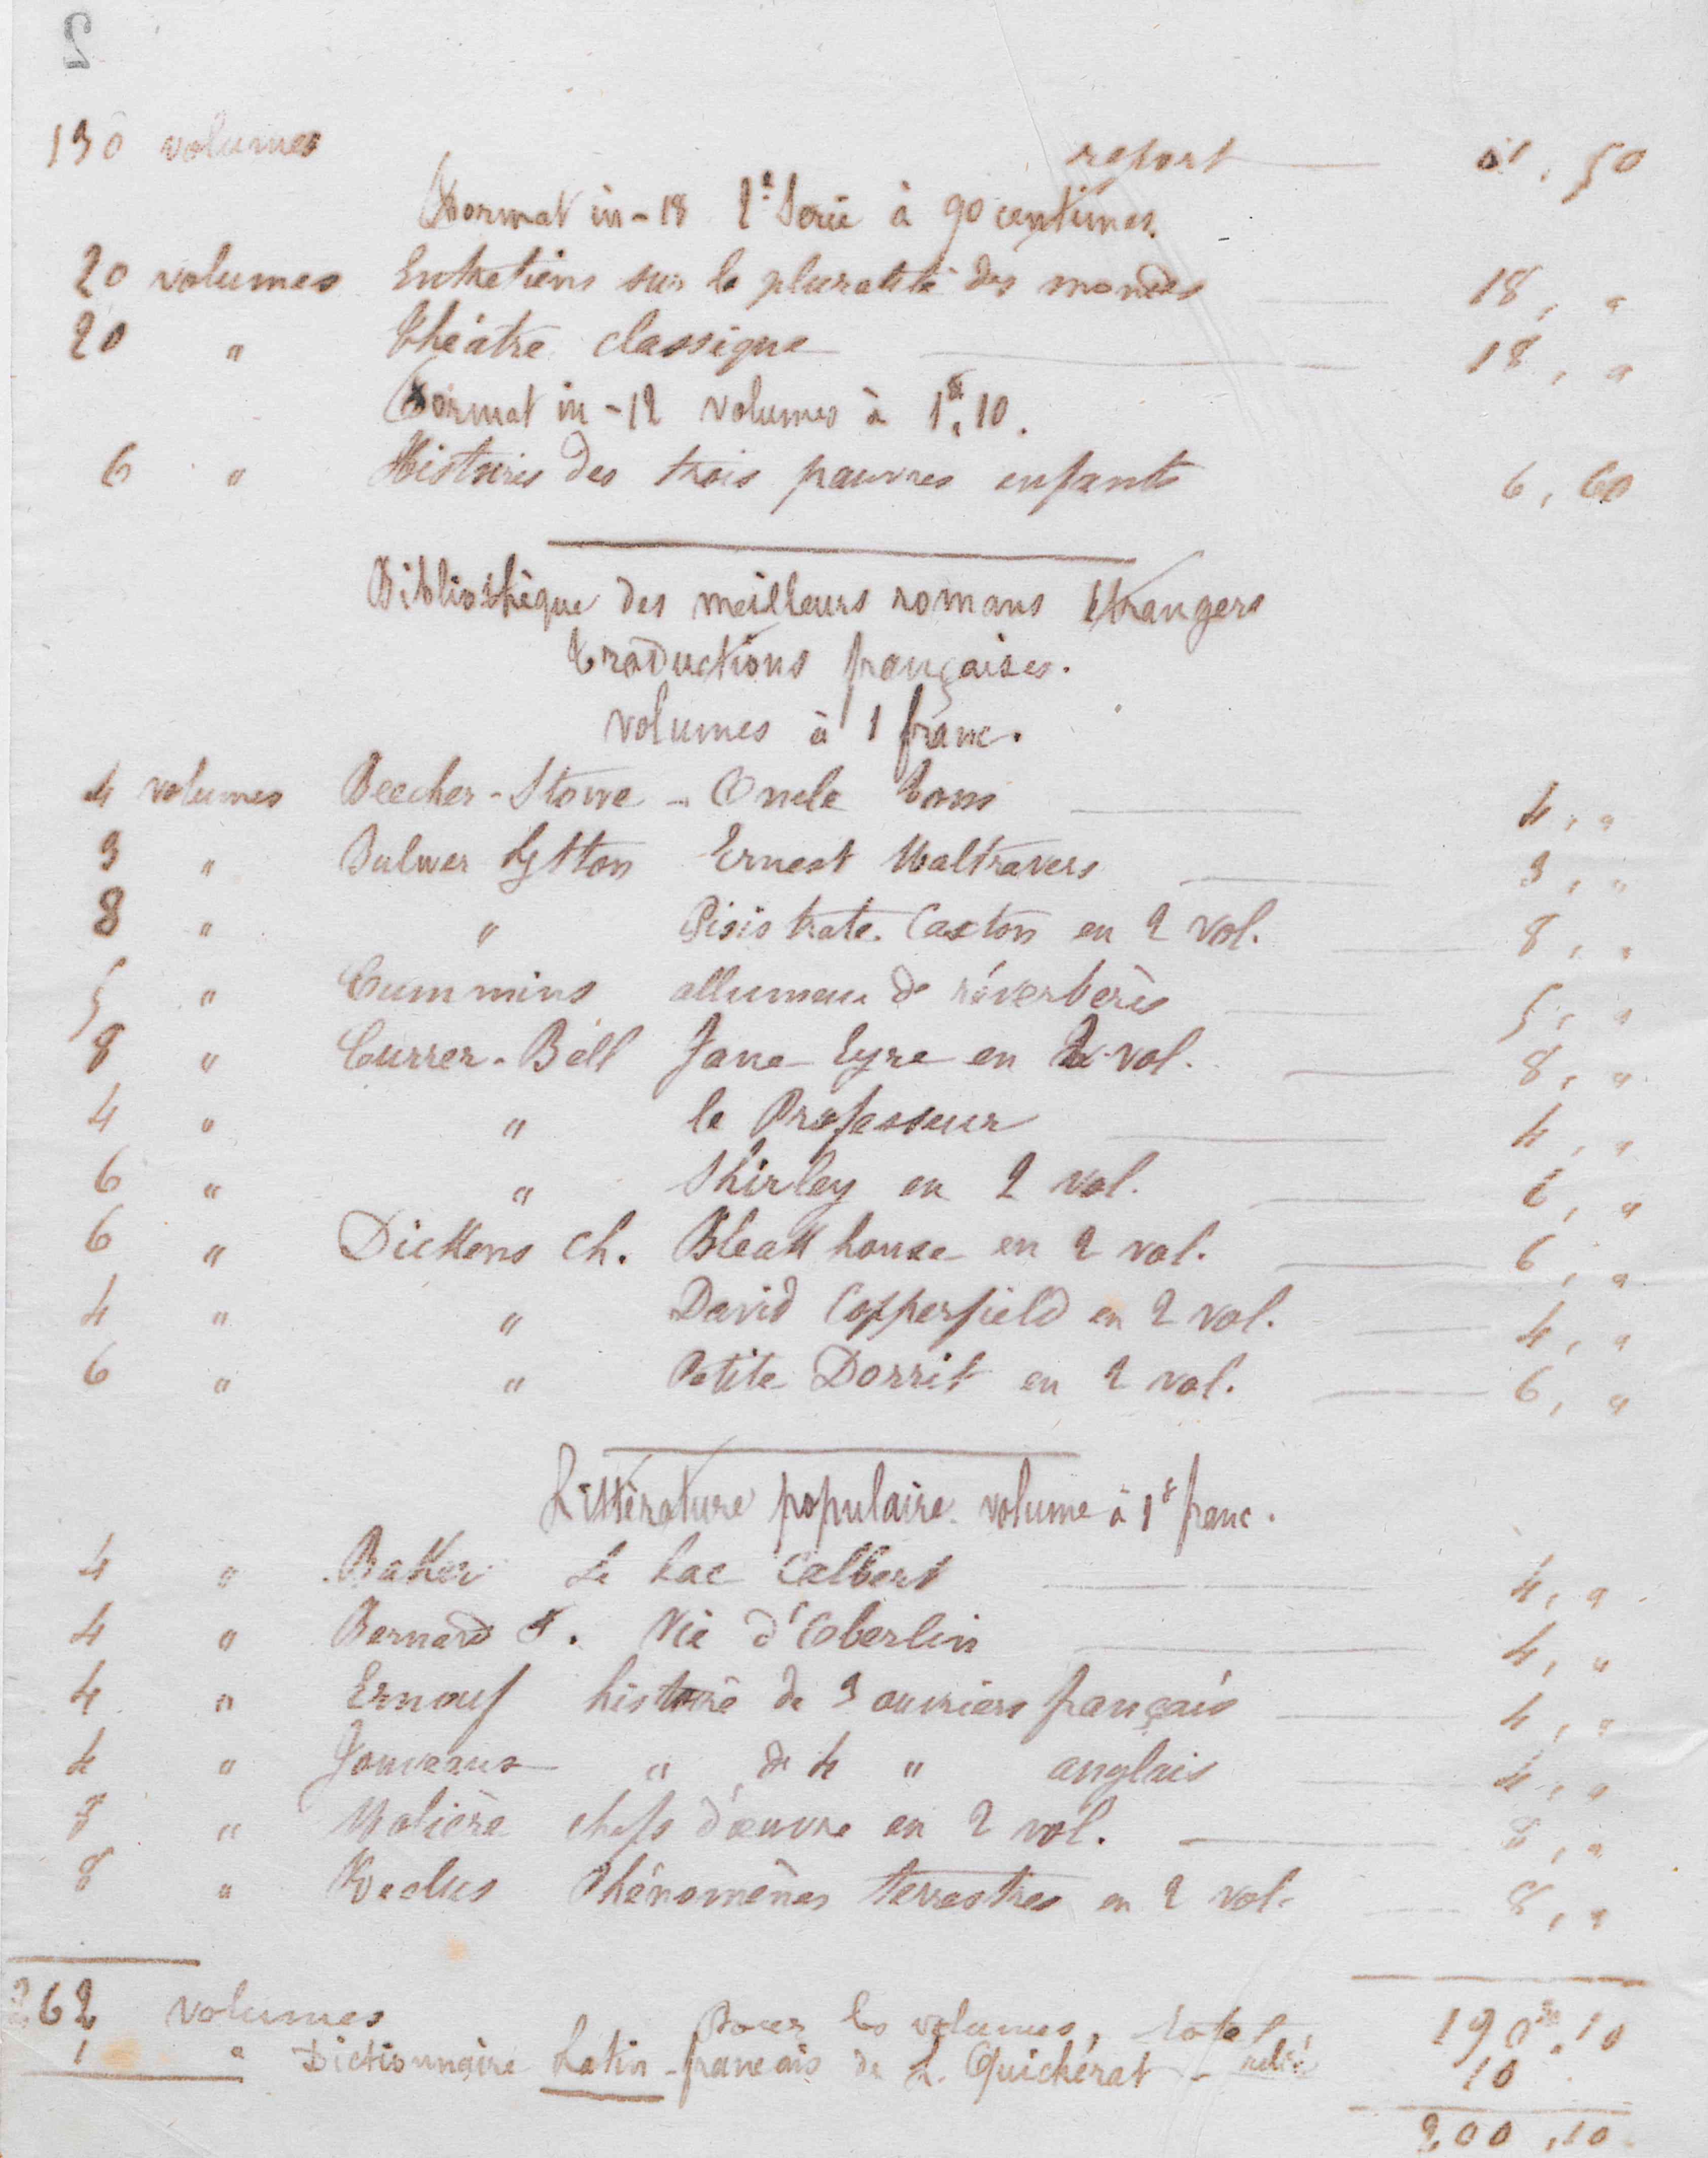 2
130 volumes report 61, 50
Format in-18 2e Serie à 90 centimes.
20 volumes Entretiens sur la pluralité des mondes 18, "
20 " Théâtre classique 18, "
Format in-12 volumes à 1f,10.
6 " Histoires des trois pauvres enfants 6, 60
Bibliothèque des meilleurs romans étrangers
traductions françaises.
volumes à 1 franc.
4 volumes Beecher-Stowe - Oncle Tom 4, "
3 " Bulwer Lytton Ernest Maltravers 3, "
8 " " Pisistrate Caxton en 2 vol. 8, "
5 " Cummins allumeur de réverbères 5, "
8 " Currer-Bell Jane Eyre en 2 vol. 8, "
4 " " le Professeur 4, "
6 " " Shirley en 2 vol. 6, "
6 " Dickens Ch. Bleak house en 2 vol. 6, "
4 " " David Copperfield en 2 vol. 4, "
6 " " Petite Dorrit en 2 vol. 6, "
Littérature populaire volume à 1f franc.
4 " Baker Le Lac Calbert 4, "
4 " Bernard F. Vie d'Oberlin 4, "
4 " Ernouf histoire de 3 ouvriers français 4, "
4 " Jouveaux " de 4 " anglais 4, "
8 " Molière chefs d'œuvre en 2 vol. 8, "
8 " Reclus Phénomènes terrestres en 2 vol. 8, "
262 volumes Pour les volumes, total 190fr,10
1 " Dictionnaire Latin-français de L. Quichérat - relié 10
200,10